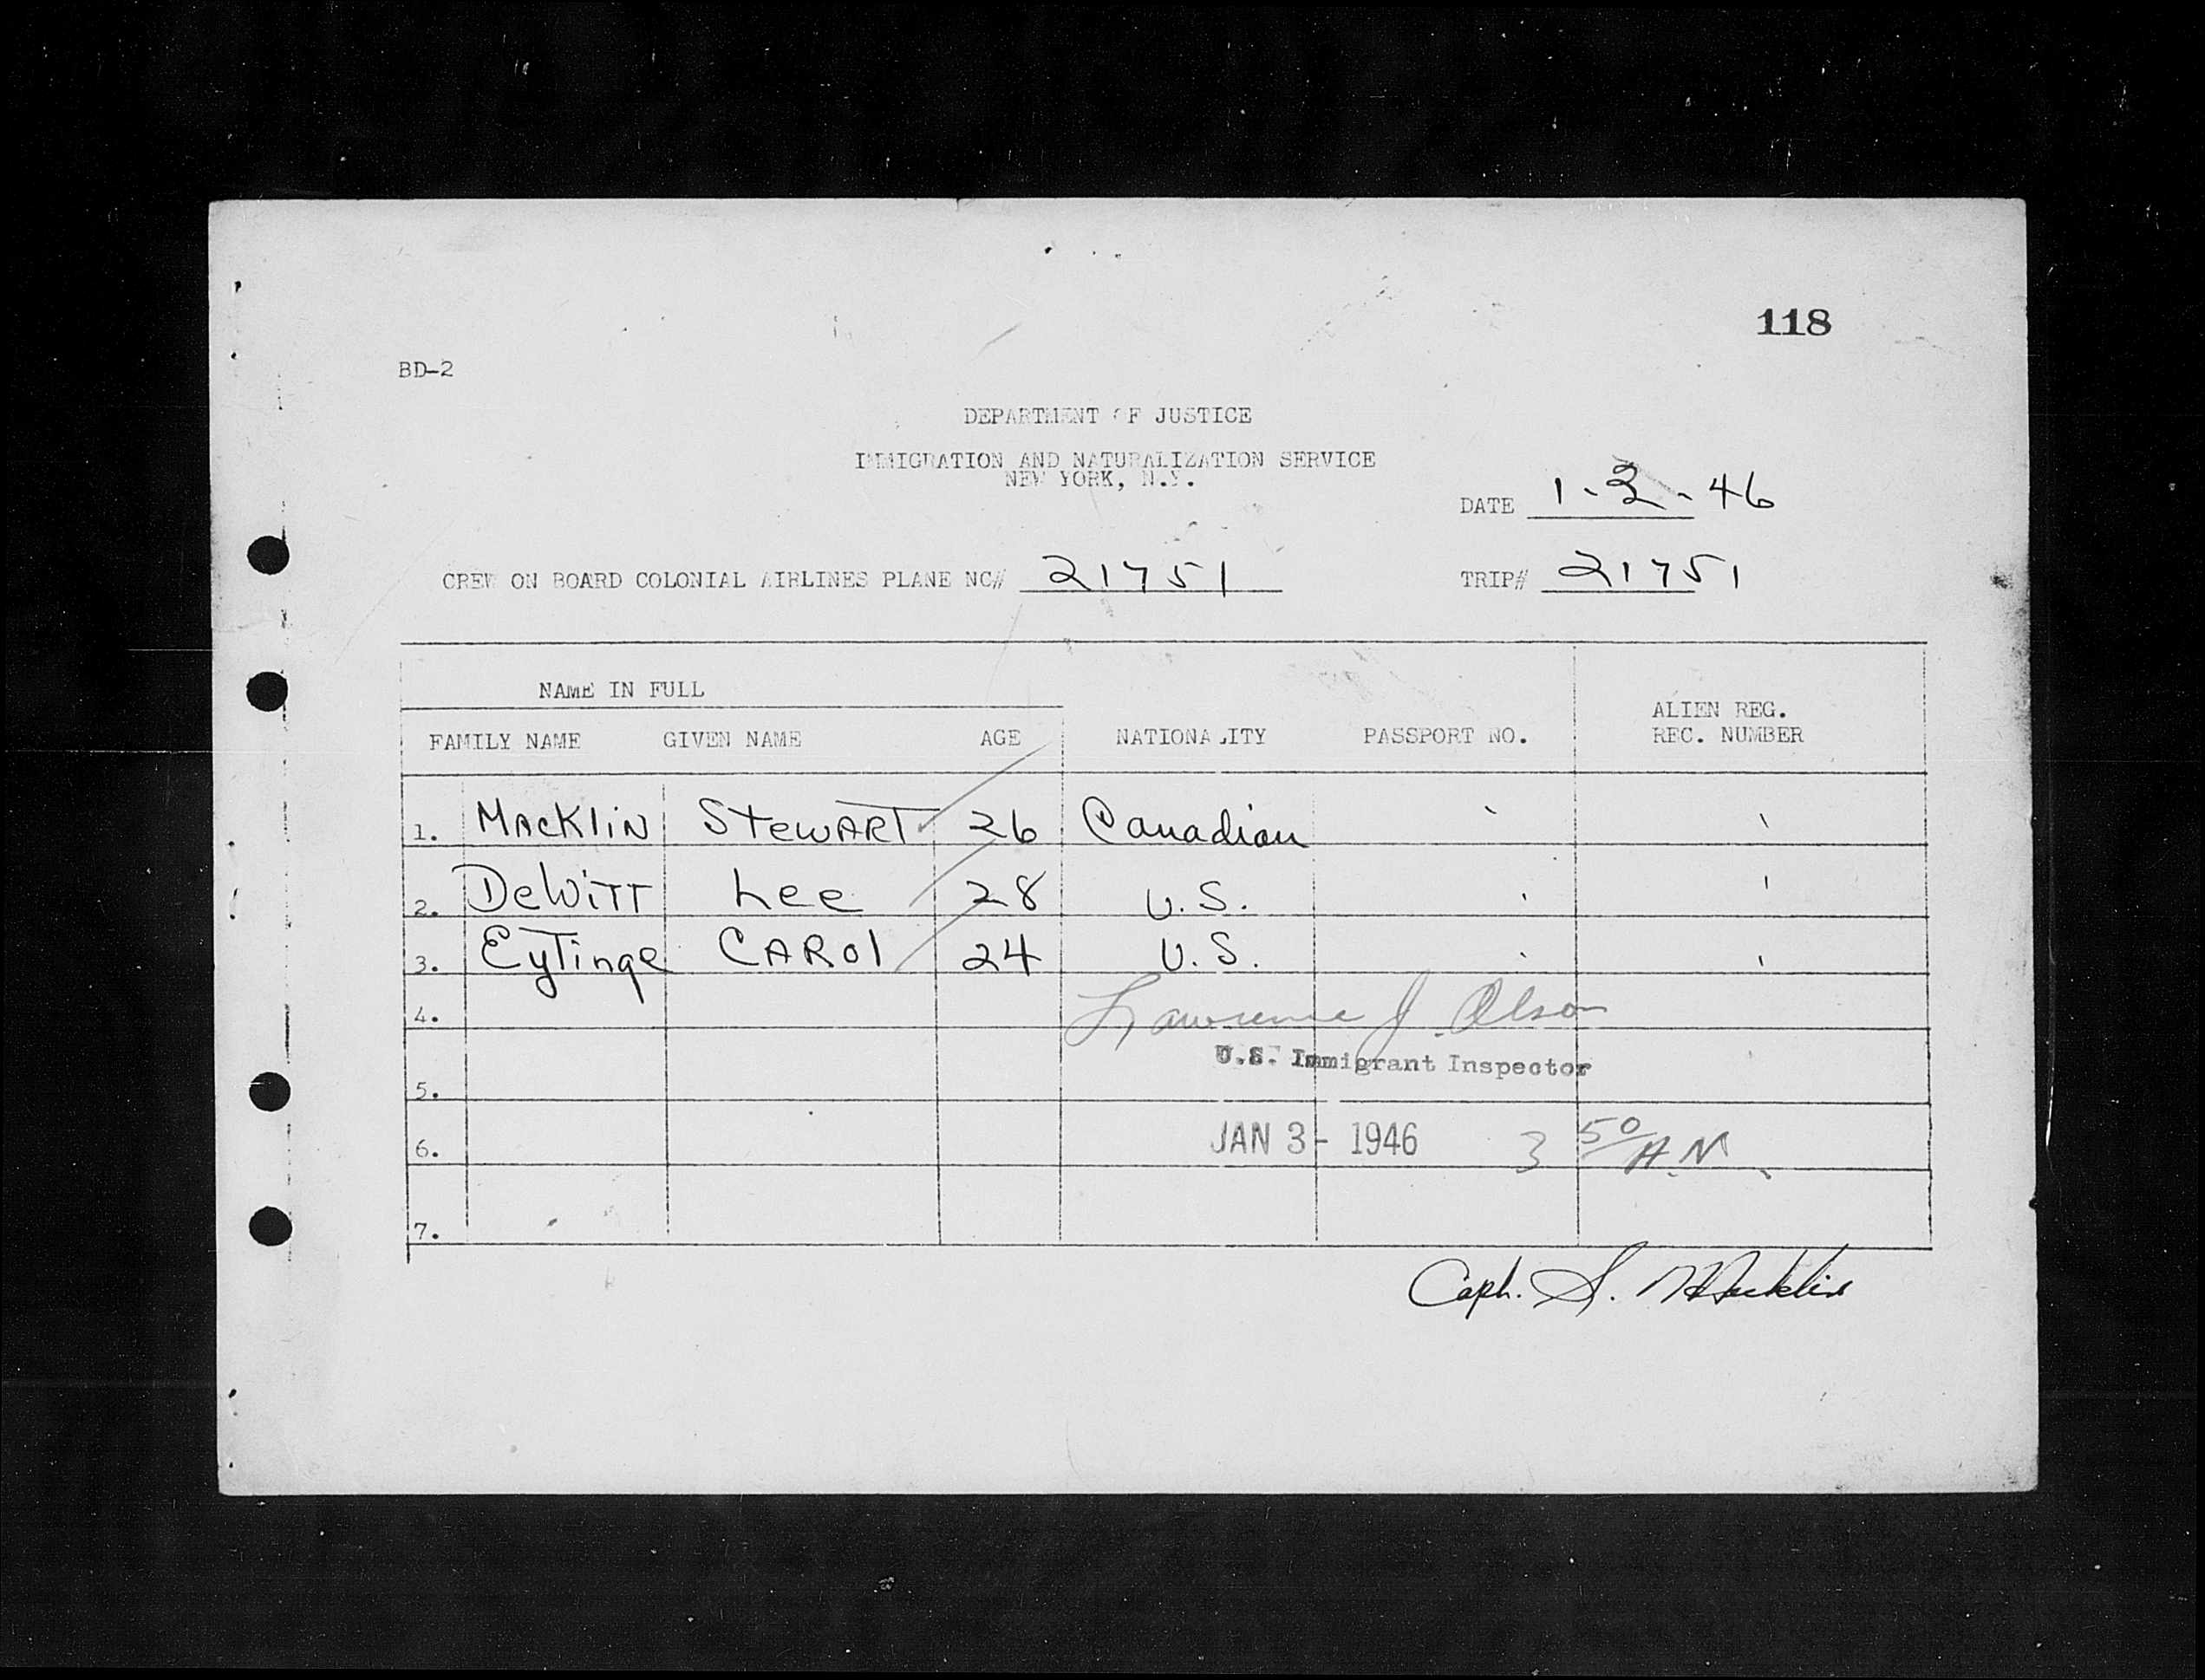 118
BD-2
DEPARTMENT OF JUSTICE
IMMIGRATION AND NATURALIZATION SERVICE
NEW YORK, N.Y.
DATE 1-3-46
CREW ON BOARD COLONIAL AIRLINES PLANE NC# 21751 TRIP# 21751
NAME IN FULL
FAMILY NAME GIVEN NAME AGE NATIONALITY PASSPORT NO. ALIEN REG. REC. NUMBER
1. MAcKliN STewART 26 Canadian
2. DeWiTT Lee 28 U.S.
3. EyTinge CARol 24 U.S.
4. Lawrence J. Olson
U.S. Immigrant Inspector
5.
6. JAN 3 - 1946 3 50/A.M.
7.
Capt. S. Macklin